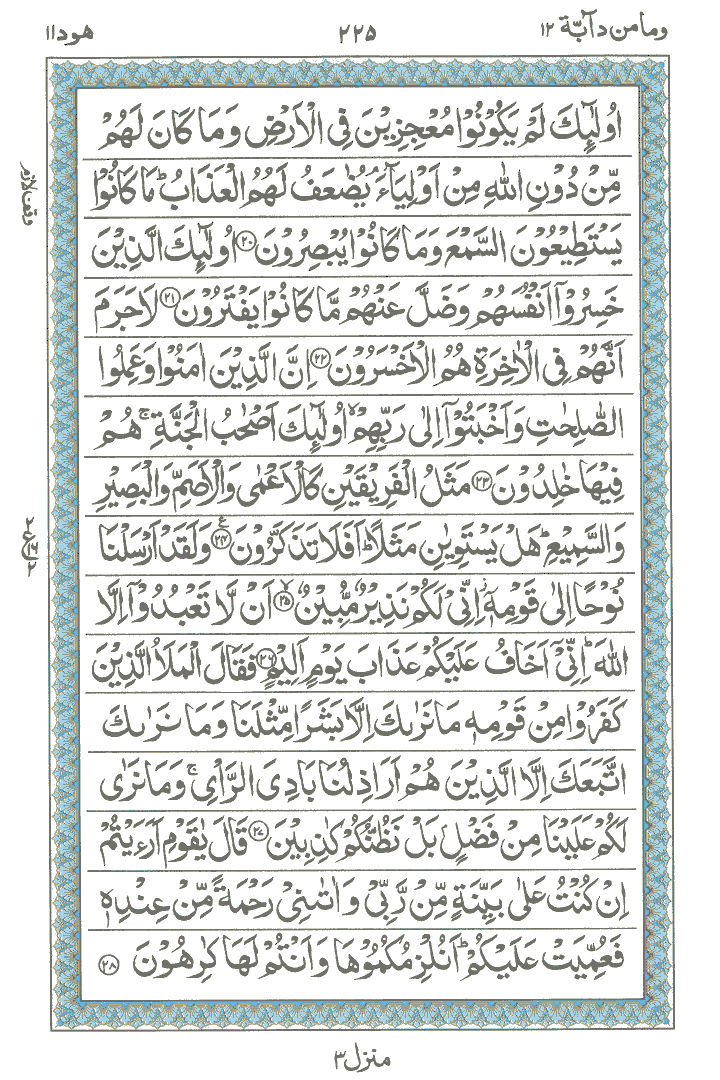 ومامن دآبّة ۱۲ ۲۲۵ هود ۱۱
اُولٰٓئِكَ لَمْ يَكُوْنُوْا مُعْجِزِيْنَ فِى الْاَرْضِ وَمَا كَانَ لَهُمْ
مِّنْ دُوْنِ اللّٰهِ مِنْ اَوْلِيَآءَ ۘ يُضٰعَفُ لَهُمُ الْعَذَابُ ؕ مَا كَانُوْا
يَسْتَطِيْعُوْنَ السَّمْعَ وَمَا كَانُوْا يُبْصِرُوْنَ ۲۰ اُولٰٓئِكَ الَّذِيْنَ
خَسِرُوْٓا اَنْفُسَهُمْ وَضَلَّ عَنْهُمْ مَّا كَانُوْا يَفْتَرُوْنَ ۲۱ لَا جَرَمَ
اَنَّهُمْ فِى الْاٰخِرَةِ هُمُ الْاَخْسَرُوْنَ ۲۲ اِنَّ الَّذِيْنَ اٰمَنُوْا وَعَمِلُوا
الصّٰلِحٰتِ وَاَخْبَتُوْٓا اِلٰى رَبِّهِمْ ۙ اُولٰٓئِكَ اَصْحٰبُ الْجَنَّةِ ۚ هُمْ
فِيْهَا خٰلِدُوْنَ ۲۳ مَثَلُ الْفَرِيْقَيْنِ كَالْاَعْمٰى وَالْاَصَمِّ وَالْبَصِيْرِ
وَالسَّمِيْعِ ؕ هَلْ يَسْتَوِيٰنِ مَثَلًا ؕ اَفَلَا تَذَكَّرُوْنَ ۲۴ وَلَقَدْ اَرْسَلْنَا
نُوْحًا اِلٰى قَوْمِهٖٓ ؗ اِنِّىْ لَكُمْ نَذِيْرٌ مُّبِيْنٌ ۲۵ اَنْ لَّا تَعْبُدُوْٓا اِلَّا
اللّٰهَ ؕ اِنِّىْٓ اَخَافُ عَلَيْكُمْ عَذَابَ يَوْمٍ اَلِيْمٍ ۲۶ فَقَالَ الْمَلَاُ الَّذِيْنَ
كَفَرُوْا مِنْ قَوْمِهٖ مَا نَرٰىكَ اِلَّا بَشَرًا مِّثْلَنَا وَمَا نَرٰىكَ
اتَّبَعَكَ اِلَّا الَّذِيْنَ هُمْ اَرَاذِلُنَا بَادِىَ الرَّاْىِ ۚ وَمَا نَرٰى
لَكُمْ عَلَيْنَا مِنْ فَضْلٍۭ بَلْ نَظُنُّكُمْ كٰذِبِيْنَ ۲۷ قَالَ يٰقَوْمِ اَرَءَيْتُمْ
اِنْ كُنْتُ عَلٰى بَيِّنَةٍ مِّنْ رَّبِّىْ وَاٰتٰىنِىْ رَحْمَةً مِّنْ عِنْدِهٖ
فَعُمِّيَتْ عَلَيْكُمْ ؕ اَنُلْزِمُكُمُوْهَا وَاَنْتُمْ لَهَا كٰرِهُوْنَ ۲۸
منزل ۳